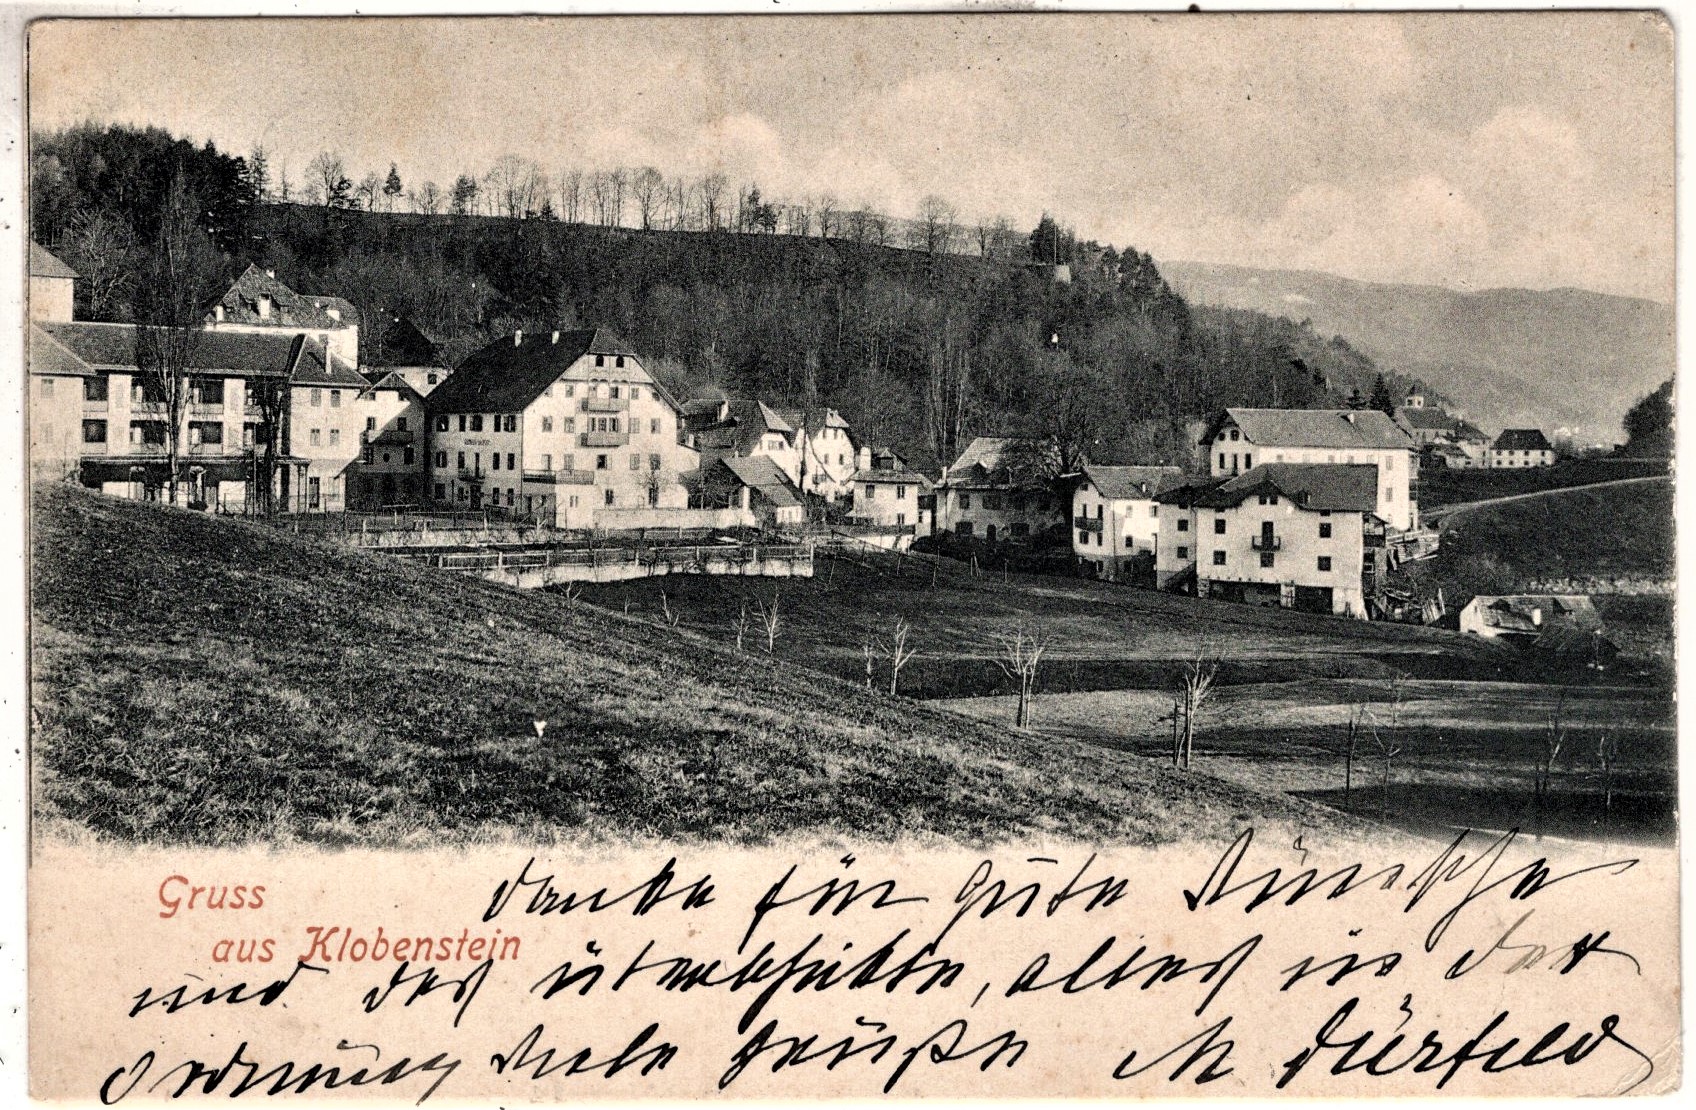 Gruss
aus Klobenstein
Danke für gute Wünsche
und das überschickte, alles in der
Ordnung viele Grüße M Dürfeld